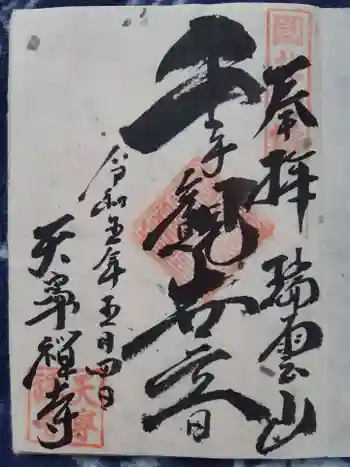 奉拝 瑞雲山
千手観世音
令和五年五月四日
天寧禅寺